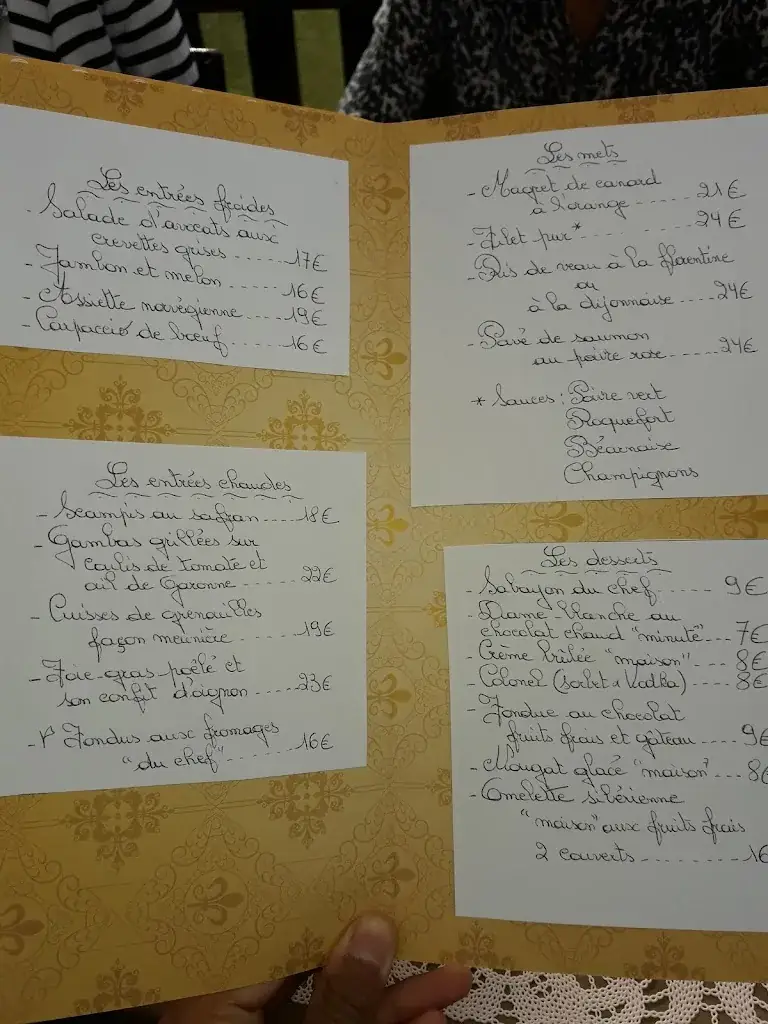 Les entrées froides
- Salade d'avocats aux
crevettes grises ...... 17€
- Jambon et melon ...... 16€
- Assiette norvégienne ... 19€
- Carpaccio de bœuf ..... 16€
Les entrées chaudes
- Scampis au safran ..... 18€
- Gambas grillées sur
coulis de tomate et
ail de Garonne ...... 22€
- Cuisses de grenouilles
façon meunière ..... 19€
- Foie-gras poêlé et
son confit d'oignon ..... 23€
- Fondus aux fromages
"du chef" ...... 16€
Les mets
- Magret de canard
à l'orange ..... 21€
- Filet pur* ...... 24€
- Ris de veau à la florentine
ou
à la dijonnaise .... 24€
- Pavé de saumon
au poivre rose ..... 24€
* Sauces : Poivre vert
Roquefort
Béarnaise
Champignons
Les desserts
- Sabayon du chef ..... 9€
- Dame-blanche au
chocolat chaud "minute" ... 7€
- Crème brûlée "maison" ... 8€
- Colonel (sorbet + Vodka) .... 8€
- Fondue au chocolat
fruits frais et gâteau .... 9€
- Nougat glacé "maison" ... 8€
- Omelette sibérienne
"maison" aux fruits frais
2 couverts ....... 16